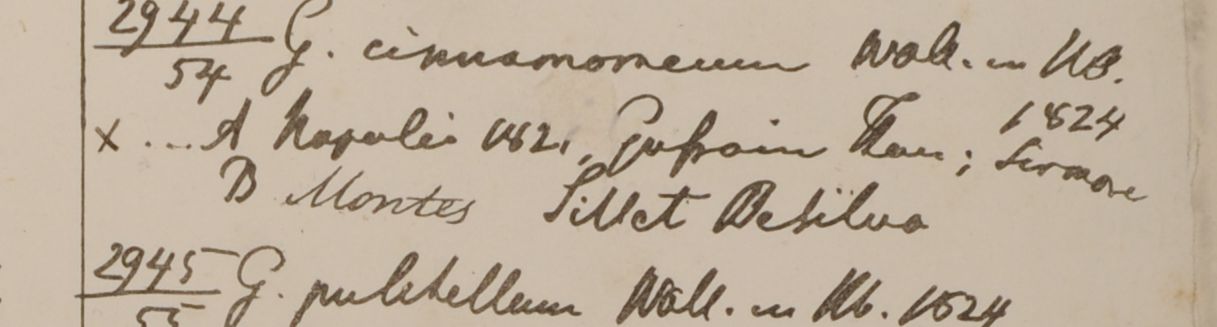 2944 G. cinnamomeum Wall. in Hb.
54 1824
x ... A Napalia 1821, Gossain Than; Sirmore
B Montes Sillet De Silva
2945 G. pulchellum Wall. in Hb. 1824
55